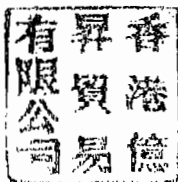 香港億
昇貿易
有限公司